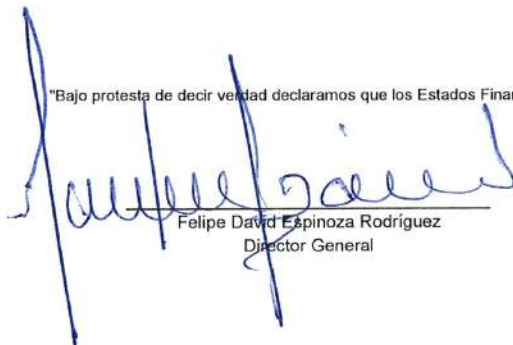 "Bajo protesta de decir verdad declaramos que los Estados Finan
Felipe David Espinoza Rodríguez
Director General